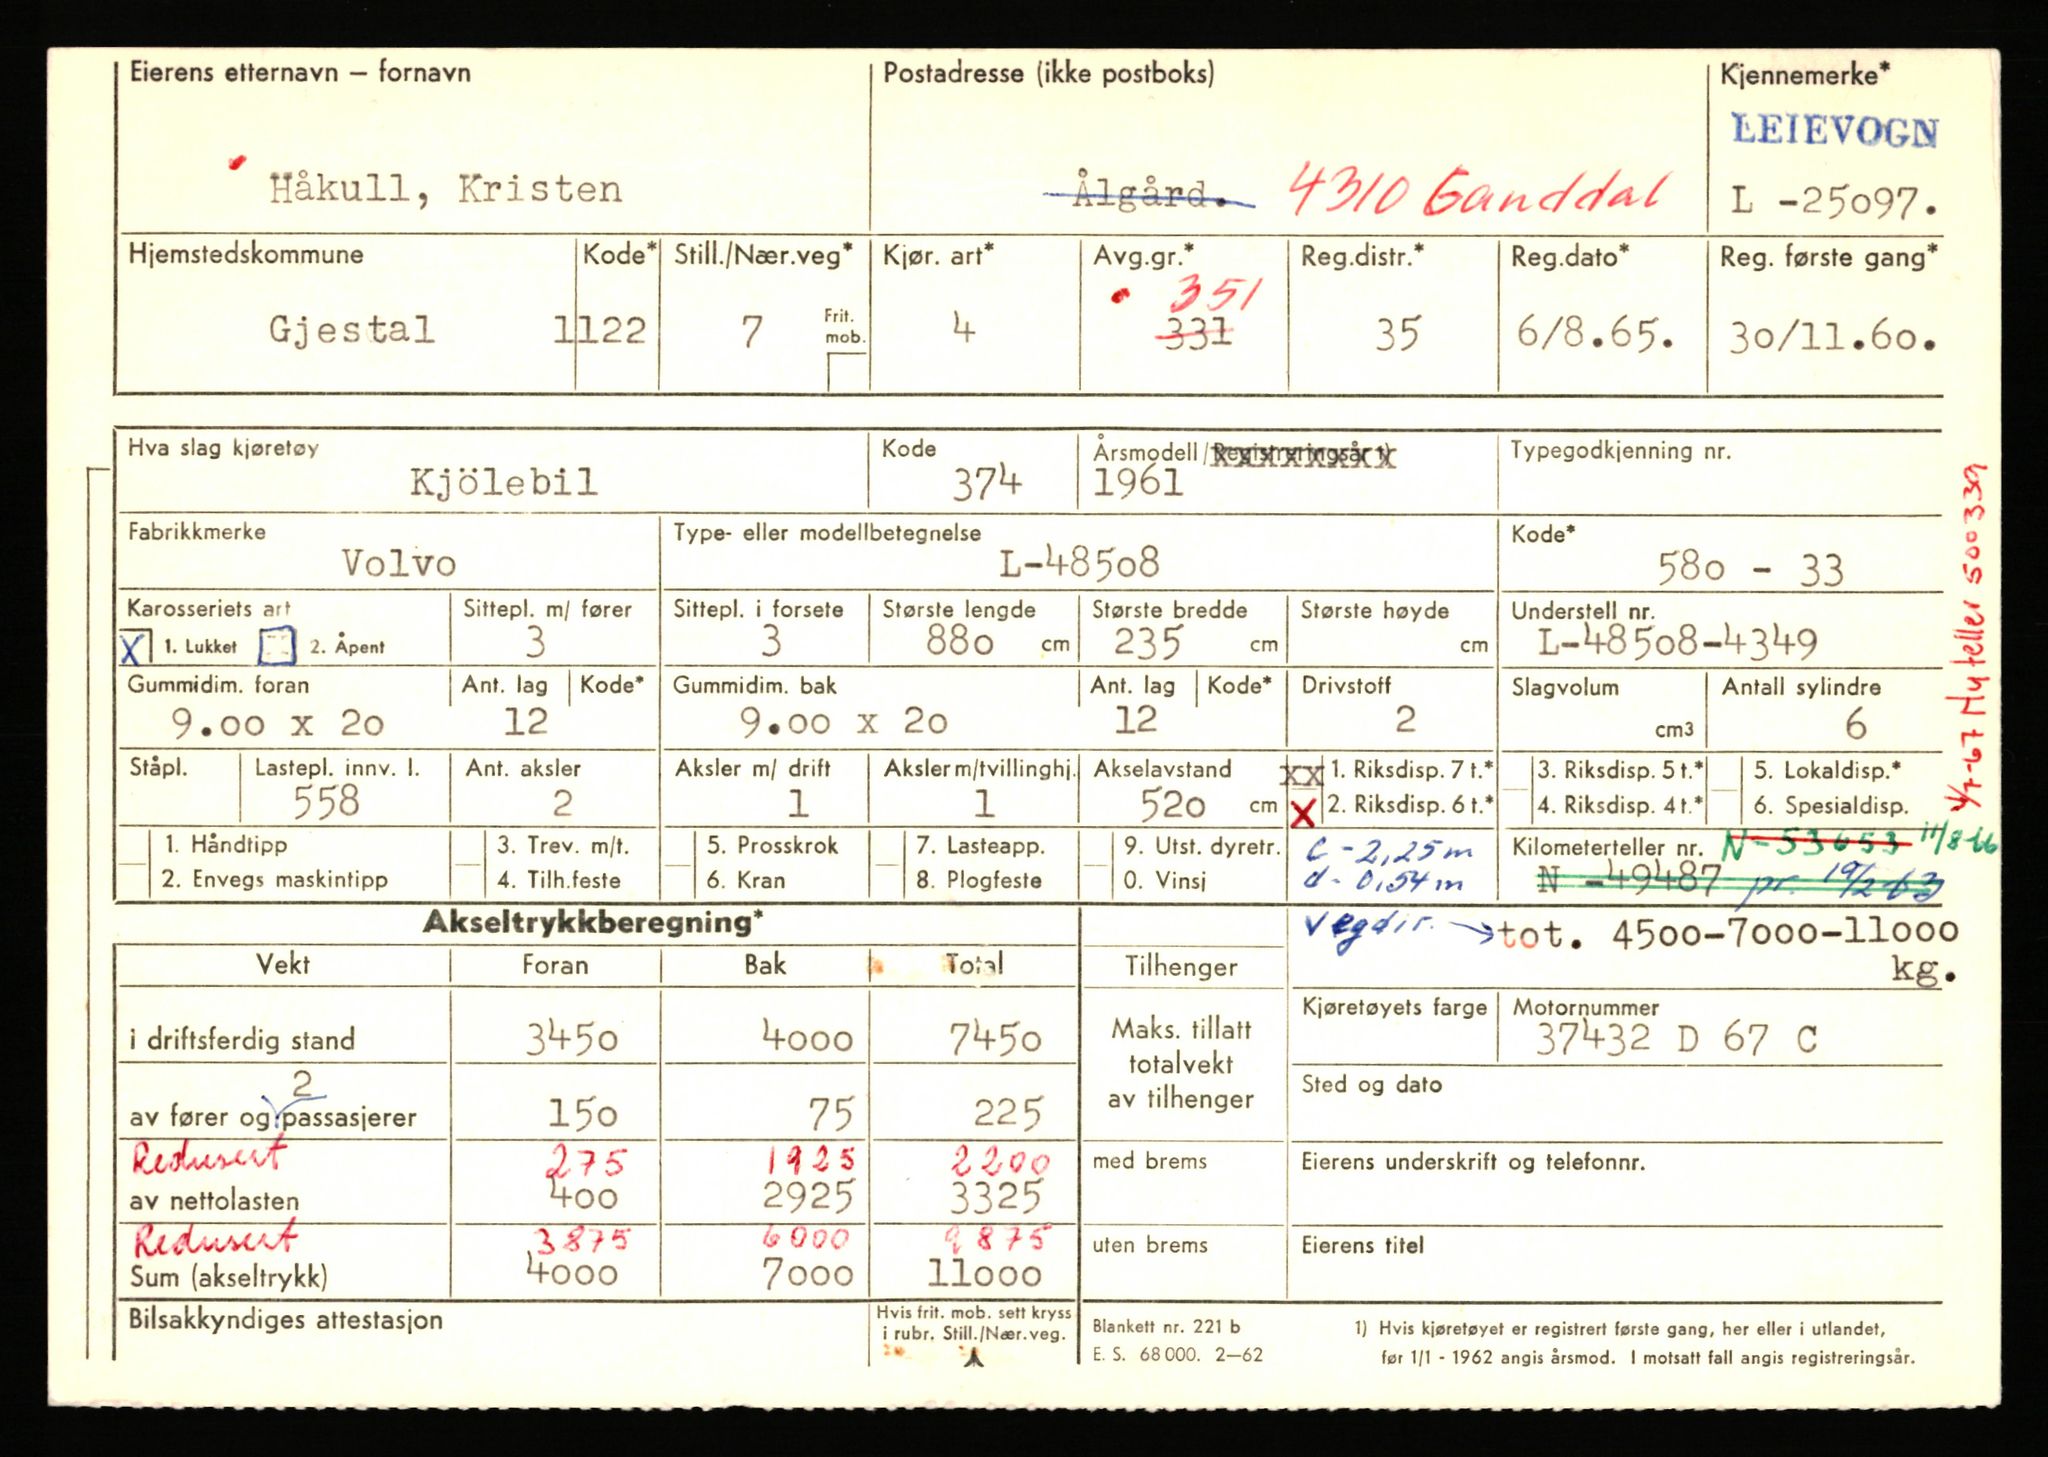 Eierens etternavn – fornavn
Postadresse (ikke postboks)
Kjennemerke*
LEIEVOGN
Håkull, Kristen
Ålgård. 4310 Ganddal
L -25097.
Hjemstedskommune Kode* Still./Nær.veg* Kjør. art* Avg.gr.* Reg.distr.* Reg.dato* Reg. første gang*
351
Gjestal 1122 7 Frit. mob. 4 331 35 6/8.65. 30/11.60.
Hva slag kjøretøy Kode Årsmodell/Registreringsår 1) Typegodkjenning nr.
Kjölebil 374 1961
Fabrikkmerke Type- eller modellbetegnelse Kode*
Volvo L-48508 580 - 33
Karosseriets art Sittepl. m/ fører Sittepl. i forsete Største lengde Største bredde Største høyde Understell nr.
X 1. Lukket 2. Åpent 3 3 880 cm 235 cm cm L-48508-4349
Gummidim. foran Ant. lag Kode* Gummidim. bak Ant. lag Kode* Drivstoff Slagvolum Antall sylindre
9.00 x 20 12 9.00 x 20 12 2 cm3 6
Ståpl. Lastepl. innv. l. Ant. aksler Aksler m/ drift Aksler m/tvillinghj. Akselavstand xx 1. Riksdisp. 7 t.* 3. Riksdisp. 5 t.* 5. Lokaldisp.*
558 2 1 1 520 cm X 2. Riksdisp. 6 t.* 4. Riksdisp. 4 t.* 6. Spesialdisp.
1/7-67 Ny teller 500339
1. Håndtipp 3. Trev. m/t. 5. Prosskrok 7. Lasteapp. 9. Utst. dyretr. c - 2,25 m Kilometerteller nr. N-53653 11/8-66
2. Envegs maskintipp 4. Tilh.feste 6. Kran 8. Plogfeste 0. Vinsj d - 0,54 m N -49487 pr. 19/2-63
Akseltrykkberegning*
Vegdir. → tot. 4500-7000-11000
kg.
Vekt Foran Bak Total Tilhenger
Kjøretøyets farge Motornummer
i driftsferdig stand 3450 4000 7450 Maks. tillatt totalvekt av tilhenger 37432 D 67 C
Sted og dato
2
av fører og passasjerer 150 75 225
Redusert 275 1925 2200 med brems Eierens underskrift og telefonnr.
av nettolasten 400 2925 3325
Redusert 3875 6000 9875 uten brems Eierens titel
Sum (akseltrykk) 4000 7000 11000
Bilsakkyndiges attestasjon
Hvis frit. mob. sett kryss
i rubr. Still./Nær.veg.
Blankett nr. 221 b
E. S. 68 000. 2–62
1) Hvis kjøretøyet er registrert første gang, her eller i utlandet,
før 1/1 - 1962 angis årsmod. I motsatt fall angis registreringsår.